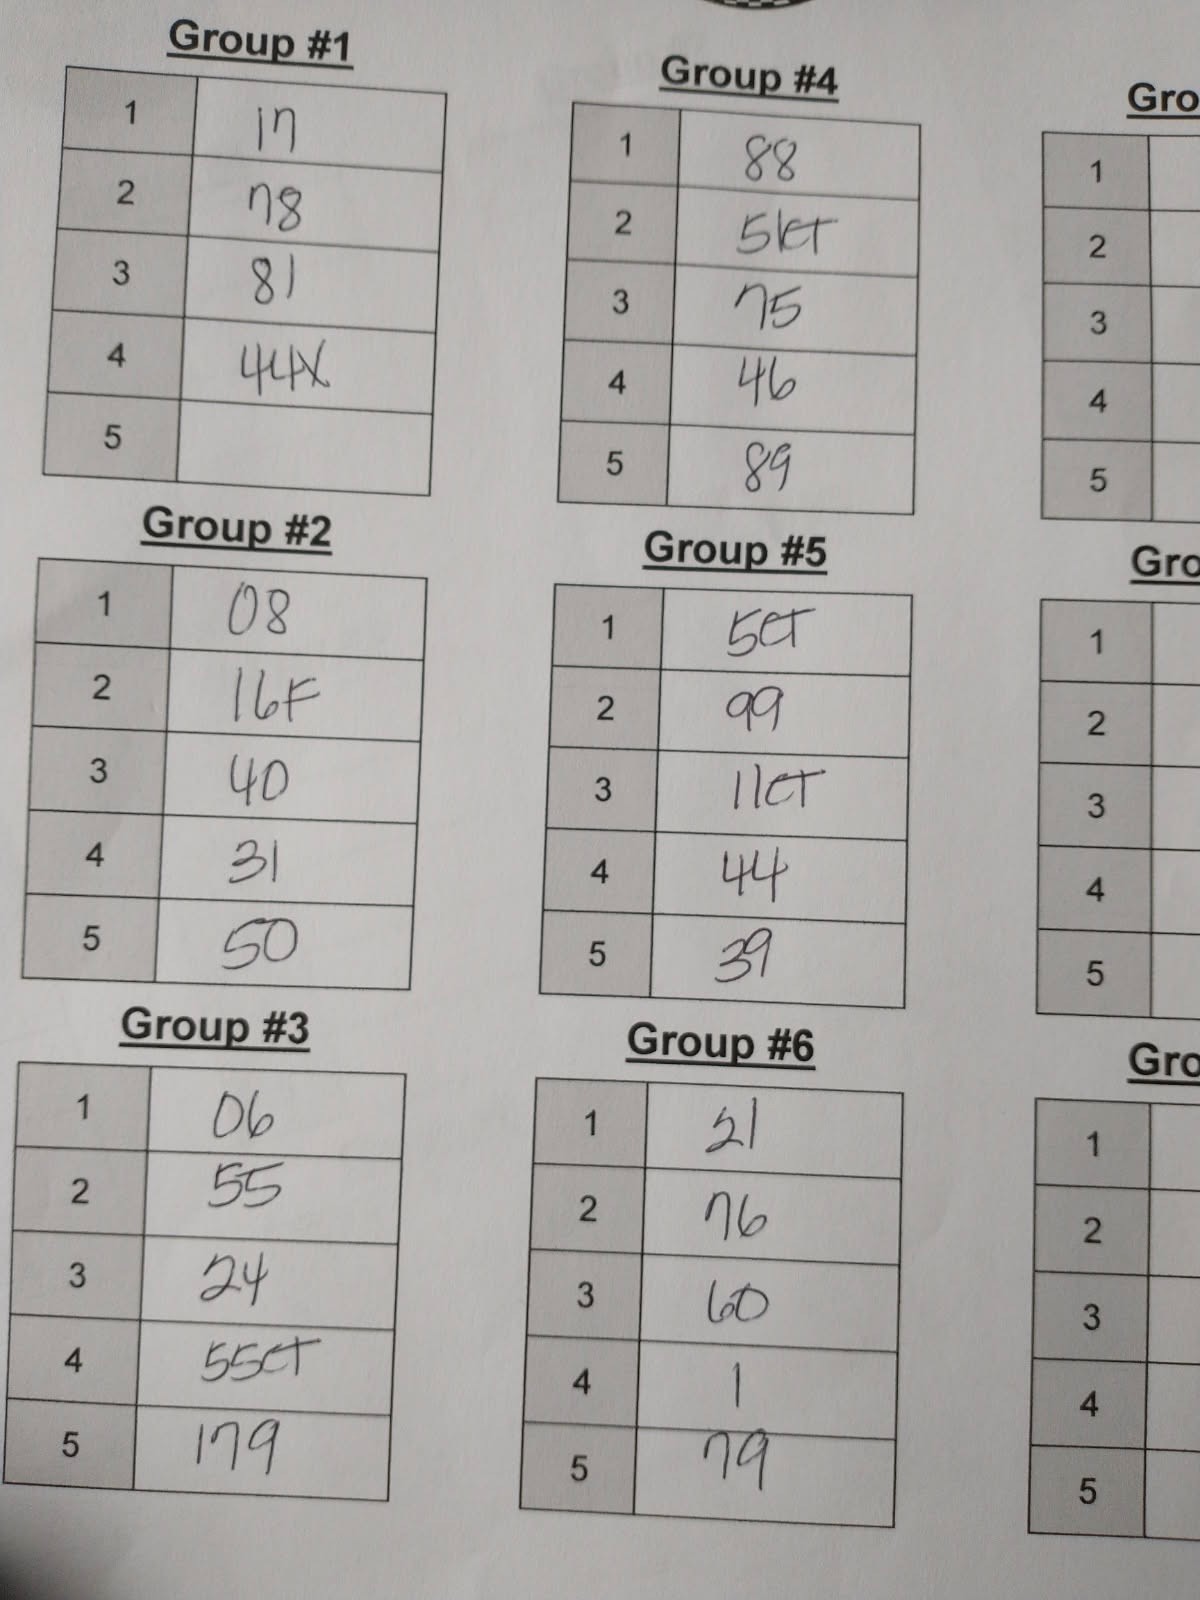 Group #1
1 17
2 78
3 81
4 44X
5
Group #2
1 08
2 16F
3 40
4 31
5 50
Group #3
1 06
2 55
3 24
4 55CT
5 179
Group #4
1 88
2 5KT
3 75
4 46
5 89
Group #5
1 5CT
2 99
3 11CT
4 44
5 39
Group #6
1 21
2 76
3 60
4 1
5 79
Gro
1
2
3
4
5
Gro
1
2
3
4
5
Gro
1
2
3
4
5